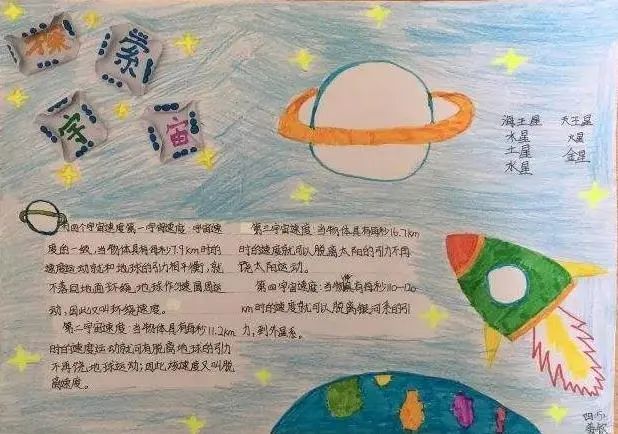 探索
宇宙
海王星 天王星
水星 火星
土星 金星
水星
四个宇宙速度第一宇宙速度:宇宙速
度的一级,当物体具有每秒7.9km时的
速度运动就和地球的引力相平衡,就
不落回地面环绕地球作匀速圆周运
动,因此又叫环绕速度。
第二宇宙速度:当物体具有每秒11.2km
时的速度运动就可有脱离地球的引力
不再饶地球运动;因此,该速度又叫脱
离速度。
第三宇宙速度:当物体具有每秒16.7km
时的速度就可以脱离太阳的引力不再
饶太阳运动。
第四宇宙速度:当物体具有每秒110-120
km时的速度就可以脱离银河系的引
力,到外温系。